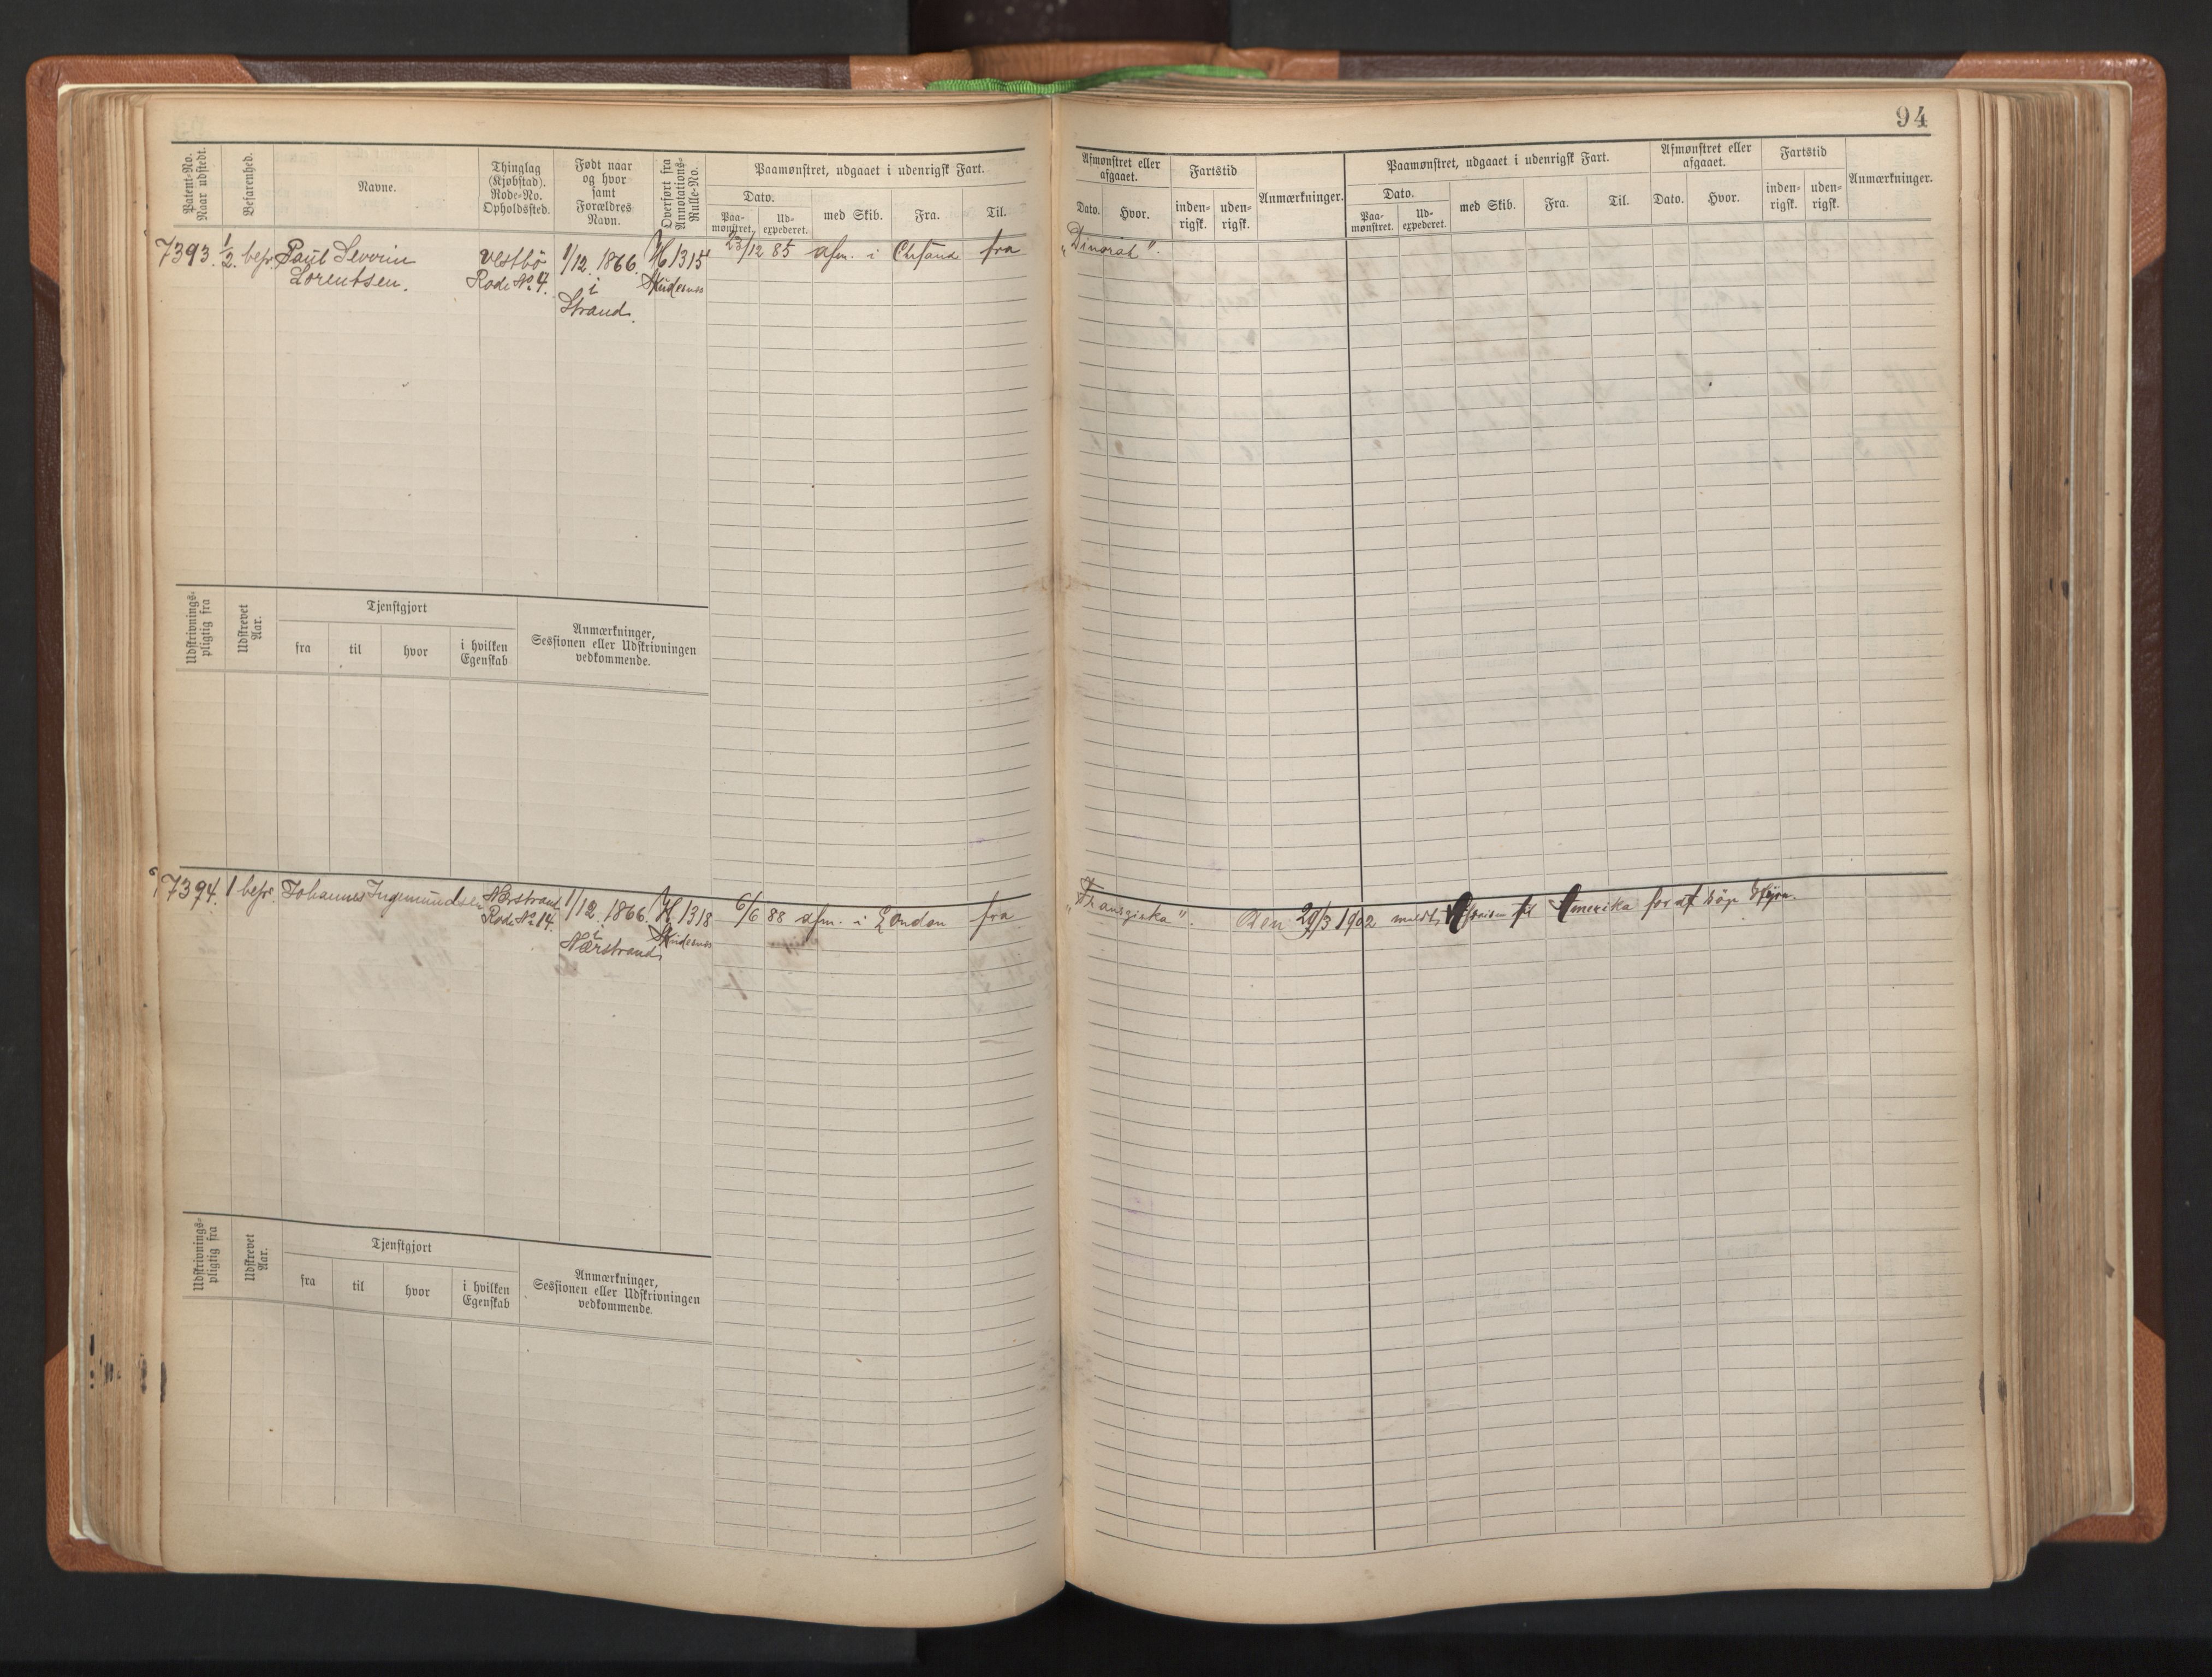 94
Patent-No. Naar udstedt.
Befarenhed.
Navne.
Thinglag (Kjøbstad). Rode-No. Opholdssted.
Født naar og hvor samt Forældres Navn.
Overført fra Annotations-Rulle-No.
Paamønstret, udgaaet i udenrigsk Fart.
Dato.
Paa-mønstret.
Ud-expederet.
med Skib.
Fra.
Til.
Afmønstret eller afgaaet.
Dato.
Hvor.
Fartstid
inden-rigsk.
uden-rigsk.
Anmærkninger.
Paamønstret, udgaaet i udenrigsk Fart.
Dato.
Paa-mønstret.
Ud-expederet.
med Skib.
Fra.
Til.
Afmønstret eller afgaaet.
Dato.
Hvor.
Fartstid
inden-rigsk.
uden-rigsk.
Anmærkninger.
7393. 1/2 befr. Paul Severin
Lorentsen.
Vestbö
Rode No 4.
1/12. 1866.
i
Strand.
1315
Skudesnes
23/12 85 afm. i Chrsand fra „Dinorah".
Udskrivnings-pligtig fra
Udskrevet Aar.
Tjenstgjort
fra
til
hvor
i hvilken Egenskab
Anmærkninger, Sessionen eller Udskrivningen vedkommende.
7394. 1 befr. Johannes Ingemundsen
Nærstrand
Rode No 14.
1/12. 1866.
i
Nærstrand
1318
Skudesnes
6/6 88 afm. i London fra „Franziska". Den 29/3 1902 meldt Afreisen til Amerika for at søge Hyre.
Udskrivnings-pligtig fra
Udskrevet Aar.
Tjenstgjort
fra
til
hvor
i hvilken Egenskab
Anmærkninger, Sessionen eller Udskrivningen vedkommende.